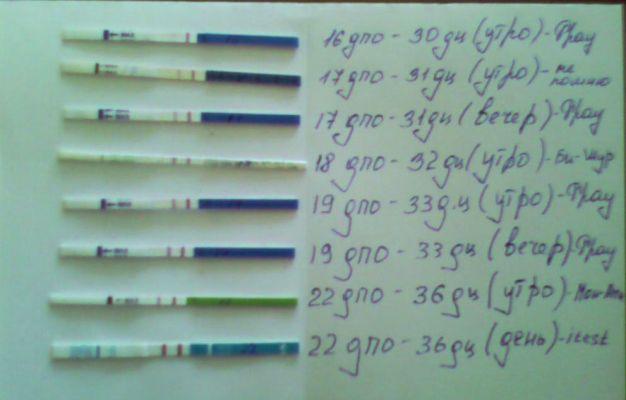 16 дпо - 30 дц (утро) - Фрау
17 дпо - 31 дц (утро) - не помню
17 дпо - 31 дц (вечер) - Фрау
18 дпо - 32 дц (утро) - Би-Шур
19 дпо - 33 д.ц (утро) - Фрау
19 дпо - 33 дц (вечер) - Фрау
22 дпо - 36 дц (утро) -
22 дпо - 36 дц (день) - itest